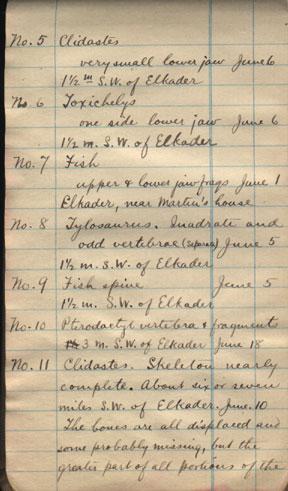 No. 5 Clidastes
very small lower jaw June 6
1½ m S.W. of Elkader
No 6 Toxichelys
one side lower jaw June 6
1½ m. S.W. of Elkader
No. 7 Fish
upper & lower jaw frags June 1
Elkader, near Martin's house
No. 8 Tylosaurus. Quadrate and
odd vertebrae (separate) June 5
1½ m. S.W. of Elkader
No. 9 Fish spine June 5
1½ m. S.W. of Elkader
No. 10 Pterodactyl vertebra & fragments
3 m. S.W. of Elkader June 18
No. 11 Clidastes. Skeleton nearly
complete. About six or seven
miles S.W. of Elkader. June. 10
The bones are all displaced and
some probably missing, but the
greater part of all portions of the